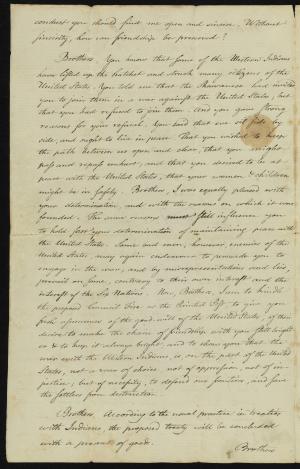 conduct you should find me open and sincere. Without
sincerity, how can friendship be preserved?
Brothers. You know that some of the Western Indians
have lifted up the hatchet and struck many citizens of the
United States. You told me that the Shawanese had invited
you to join them in a war against the United States, but
that you had refused to join them. And you gave strong
reasons for your refusal. You said that we sit side by
side, and ought to live in peace. That you wished to keep
the path between us open and clear, that you might
pass and repass unhurt, and that you desired to be at
peace with the United States, that your women & children
might be in safety. Brothers, I was equally pleased with
your determination, and with the reasons on which it was
founded. The same reasons must still influence you
to hold fast your determination of maintaining peace with
the United States. Some and men, however, enemies of the
United States, may again endeavor to persuade you to
engage in the war, and by misrepresentations and lies,
prevail on some, contrary to their own interest and the
interest of the Six Nations. Now, Brothers, I am to kindle
the proposed Council fire at the Painted Post to give you
fresh assurances of the good will of the United States, of their
desire to make the chain of friendship with you still bright
as & to keep it always bright, and to shew you that the
war with the Western Indians, is, on the part of the United
States, not a war of choice, not of oppression, not of in-
justice; but of necessity, to defend our frontiers, and save
the settlers from destruction.
Brothers. According to the usual practice in treaties
with Indians, the proposed treaty will be concluded
with a present of goods.
Brothers